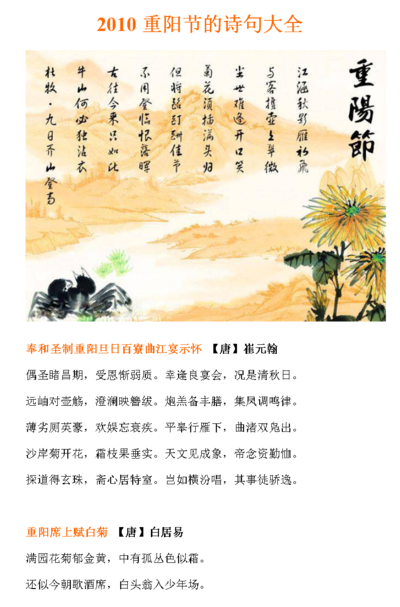 2010 重阳节的诗句大全
重陽節
江涵秋影雁初飛
与客携壺上翠微
尘世难逢开口笑
菊花須插滿头归
但将酩酊酬佳节
不用登临恨落暉
古往今来只如此
牛山何必独沾衣
杜牧·九日齐山登高
奉和圣制重阳旦日百寮曲江宴示怀 【唐】崔元翰
偶圣睹昌期，受恩惭弱质。幸逢良宴会，况是清秋日。
远岫对壶觞，澄澜映簪绂。炮羔备丰膳，集凤调鸣律。
薄劣厕英豪，欢娱忘衰疾。平皋行雁下，曲渚双凫出。
沙岸菊开花，霜枝果垂实。天文见成象，帝念资勤恤。
探道得玄珠，斋心居特室。岂如横汾唱，其事徒骄逸。
重阳席上赋白菊 【唐】白居易
满园花菊郁金黄，中有孤丛色似霜。
还似今朝歌酒席，白头翁入少年场。